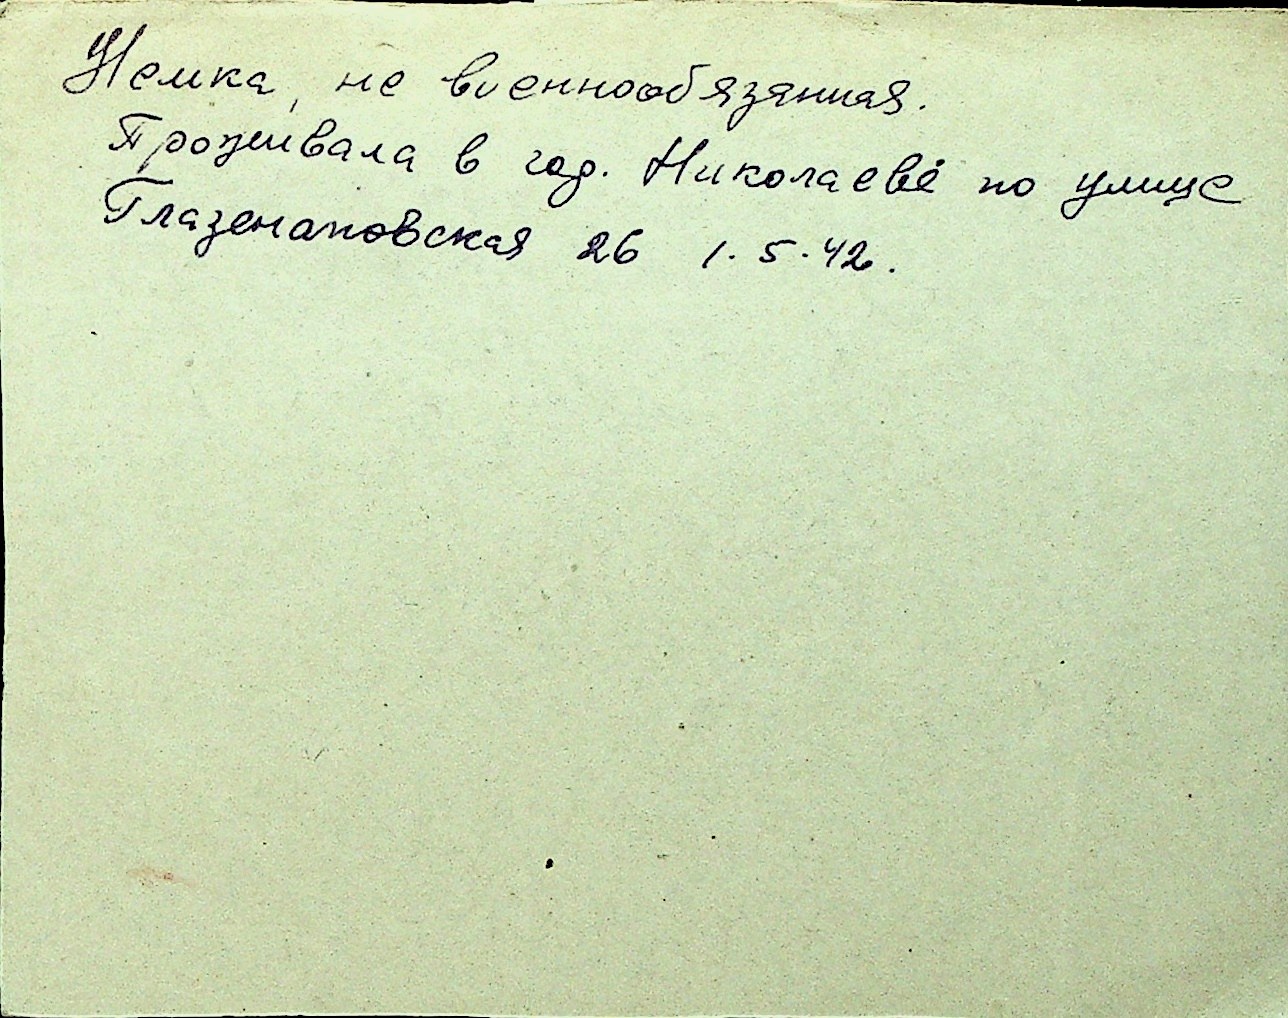 Немка, не военнообязанная.
Проживала в гор. Николаеве по улице
Глазенаповская 26 1.5.42.